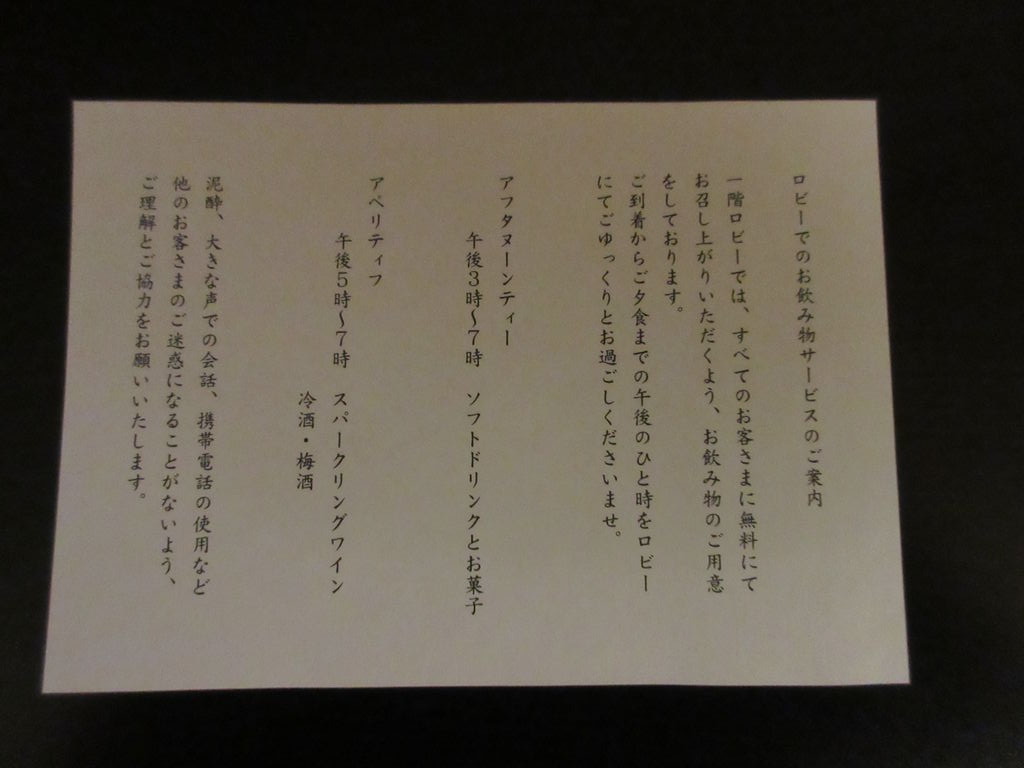 ロビーでのお飲み物サービスのご案内
一階ロビーでは、すべてのお客さまに無料にて
お召し上がりいただくよう、お飲み物のご用意
をしております。
ご到着からご夕食までの午後のひと時をロビー
にてごゆっくりとお過ごしくださいませ。
アフタヌーンティー
午後3時～7時　ソフトドリンクとお菓子
アペリティフ
午後5時～7時　スパークリングワイン
冷酒・梅酒
泥酔、大きな声での会話、携帯電話の使用など
他のお客さまのご迷惑になることがないよう、
ご理解とご協力をお願いいたします。